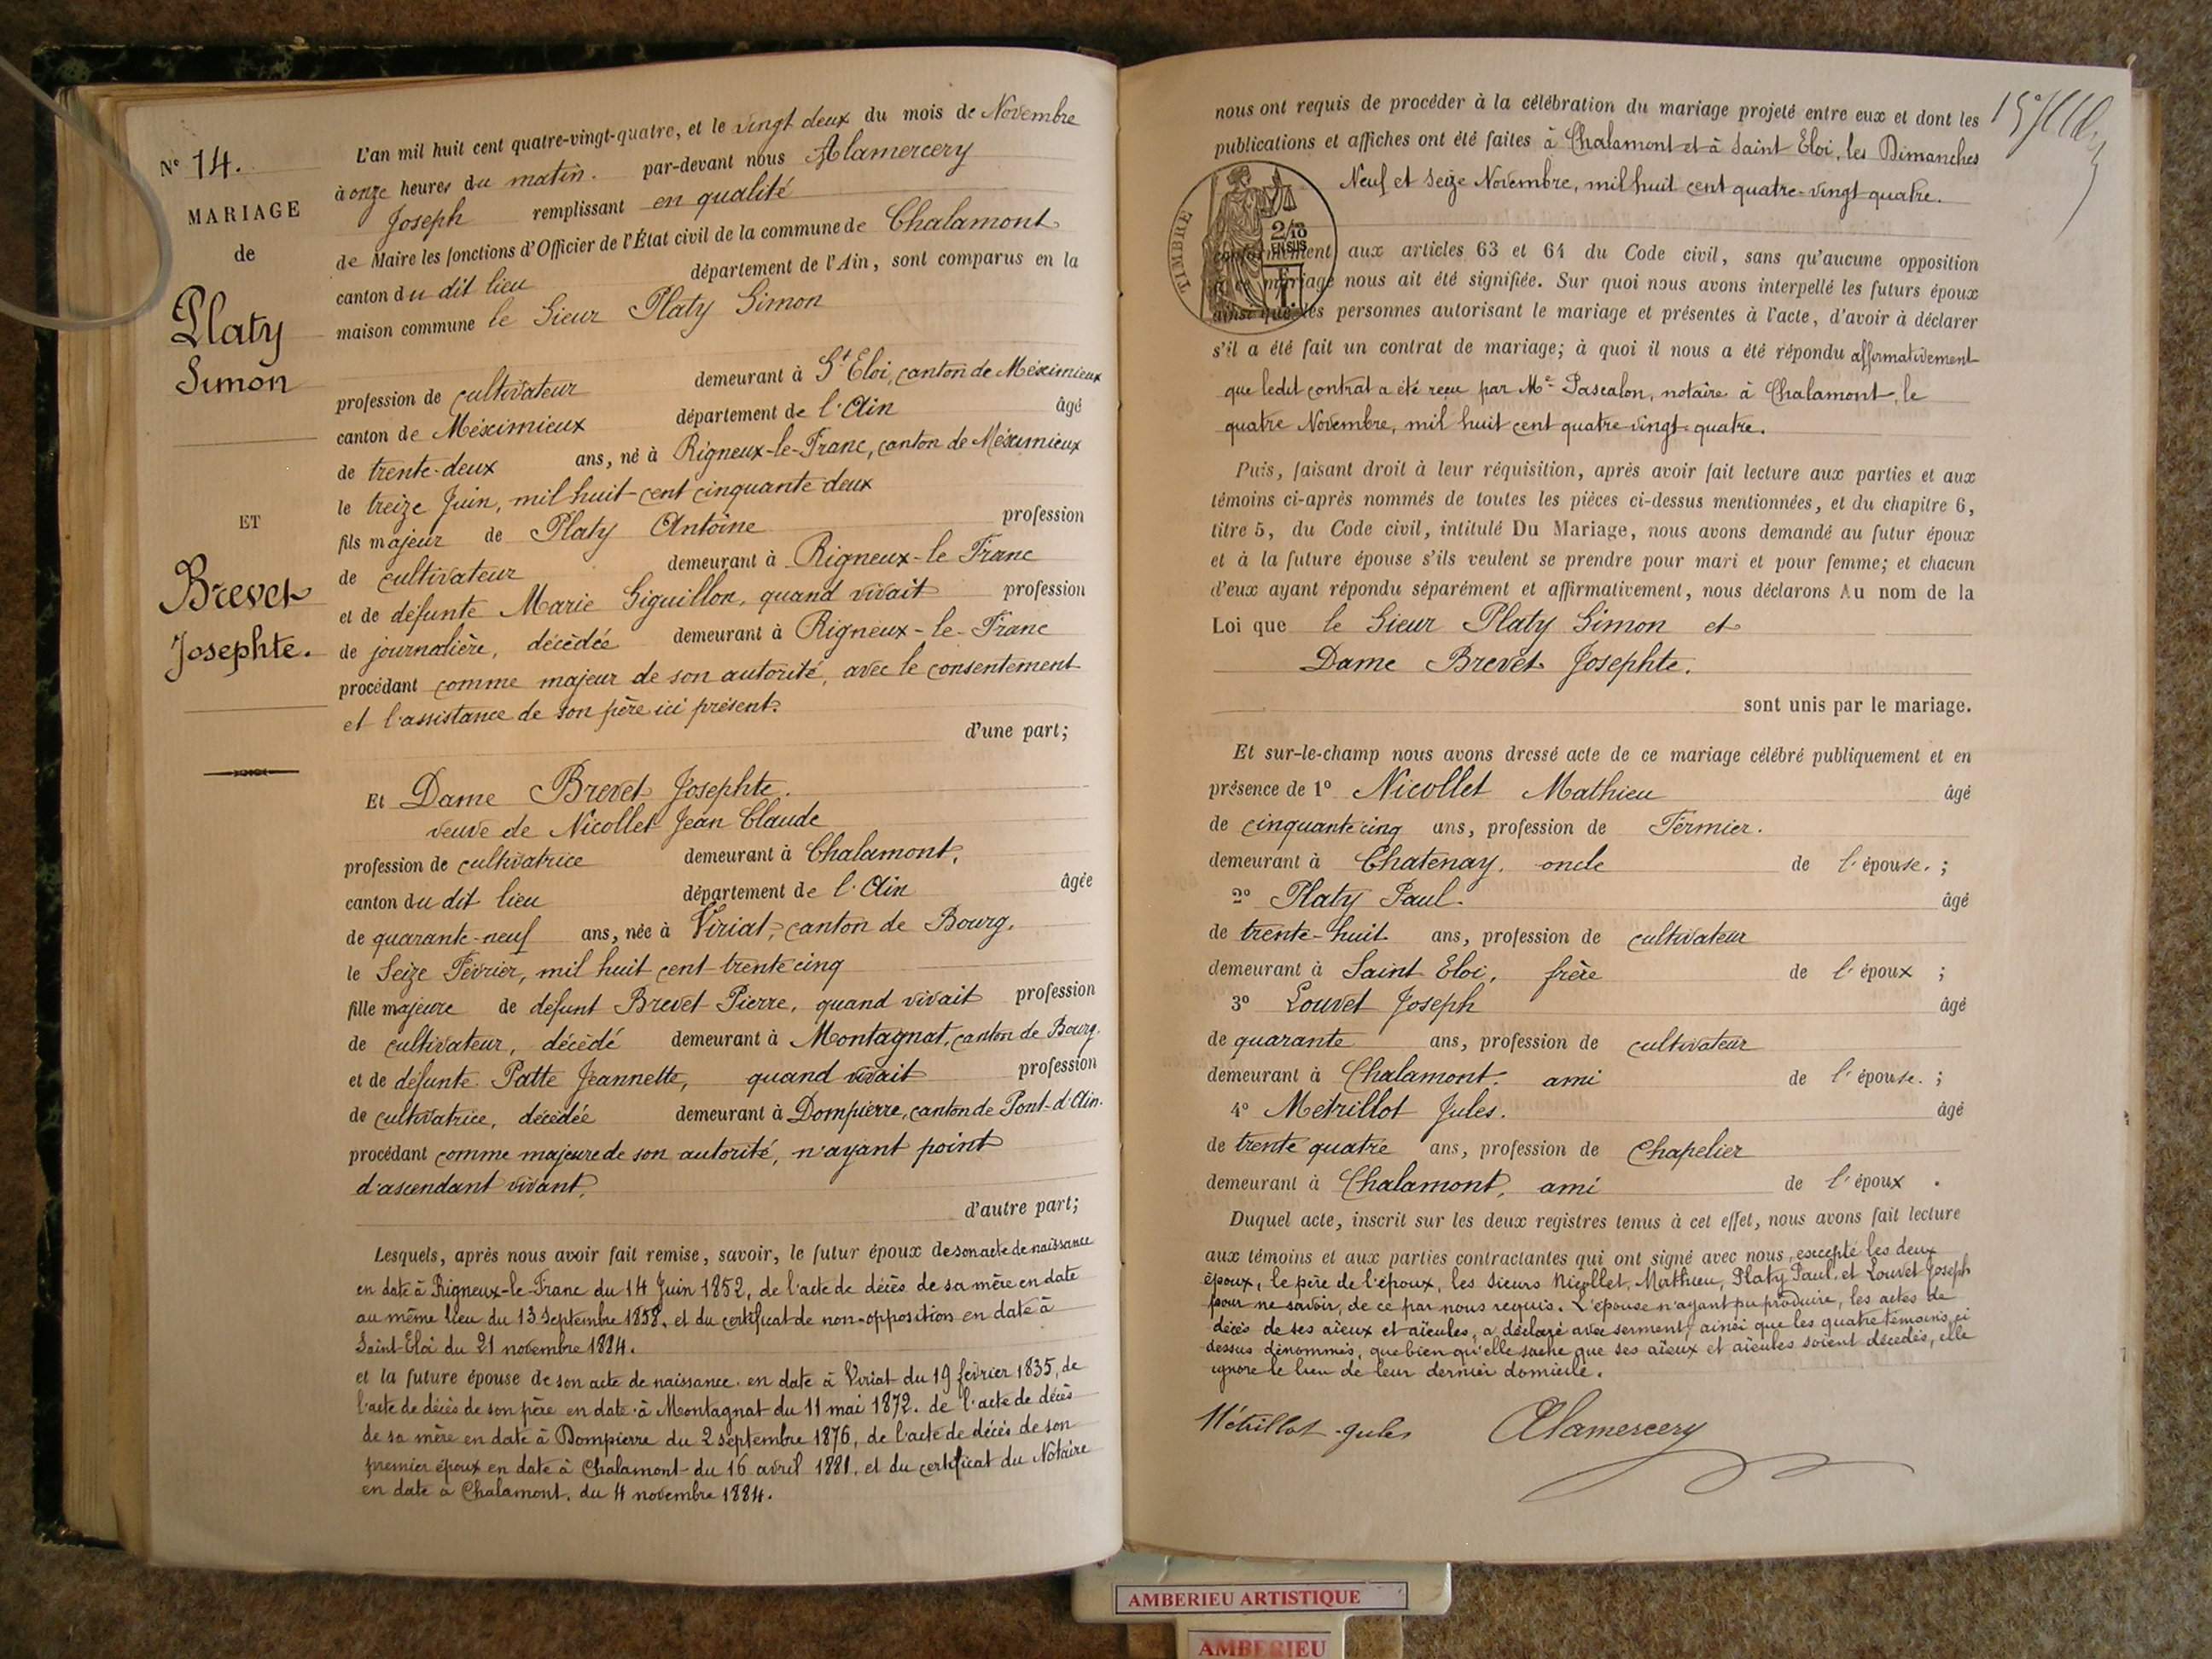 N° 14.
MARIAGE
de
Platy
Simon
ET
Brevet
Josephte.
L'an mil huit cent quatre-vingt-quatre, et le vingt deux du mois de Novembre
à onze heures du matin. par-devant nous Alamercery
Joseph remplissant en qualité
de Maire les fonctions d'Officier de l'État civil de la commune de Chalamont
canton du dit lieu département de l'Ain, sont comparus en la
maison commune le Sieur Platy Simon
profession de cultivateur demeurant à St Eloi, canton de Méximieux
canton de Méximieux département de l'Ain âgé
de trente-deux ans, né à Rigneux-le-Franc, canton de Méximieux
le treize Juin, mil huit-cent cinquante deux
fils majeur de Platy Antoine profession
de cultivateur demeurant à Rigneux-le Franc
et de défunte Marie Siguillon, quand vivait profession
de journalière, décèdée demeurant à Rigneux-le-Franc
procédant comme majeur de son autorité, avec le consentement
et l'assistance de son père ici présent.
d'une part;
Et Dame Brevet Josephte.
veuve de Nicollet Jean Claude
profession de cultivatrice demeurant à Chalamont,
canton du dit lieu département de l'Ain âgée
de quarante-neuf ans, née à Viriat, canton de Bourg.
le Seize Février, mil huit cent trente cinq
fille majeure de défunt Brevet Pierre, quand vivait profession
de cultivateur, décèdé demeurant à Montagnat, canton de Bourg.
et de défunte Patte Jeannette, quand vivait profession
de cultivatrice, décèdée demeurant à Dompierre, canton de Pont-d'Ain.
procédant comme majeure de son autorité, n'ayant point
d'ascendant vivant,
d'autre part;
Lesquels, après nous avoir fait remise, savoir, le futur époux de son acte de naissance
en date à Rigneux-le-Franc du 14 Juin 1852, de l'acte de décès de sa mère en date
au même lieu du 13 Septembre 1858, et du certificat de non-opposition en date à
Saint-Eloi du 21 novembre 1884.
et la future épouse de son acte de naissance en date à Viriat du 19 février 1835, de
l'acte de décès de son père en date à Montagnat du 11 mai 1872. de l'acte de décès
de sa mère en date à Dompierre du 2 septembre 1876, de l'acte de décès de son
premier époux en date à Chalamont du 16 avril 1881, et du certificat du Notaire
en date à Chalamont, du 4 novembre 1884.
nous ont requis de procéder à la célébration du mariage projeté entre eux et dont les
publications et affiches ont été faites à Chalamont et à Saint Eloi, les Dimanches
Neuf et Seize Novembre, mil huit cent quatre-vingt quatre.
TIMBRE
2/10
EN SUS
conformément aux articles 63 et 64 du Code civil, sans qu'aucune opposition
à ce mariage nous ait été signifiée. Sur quoi nous avons interpellé les futurs époux
ainsi que les personnes autorisant le mariage et présentes à l'acte, d'avoir à déclarer
s'il a été fait un contrat de mariage; à quoi il nous a été répondu affirmativement
que ledit contrat a été reçu par Me Pascalon, notaire à Chalamont, le
quatre Novembre, mil huit cent quatre-vingt-quatre.
Puis, faisant droit à leur réquisition, après avoir fait lecture aux parties et aux
témoins ci-après nommés de toutes les pièces ci-dessus mentionnées, et du chapitre 6,
titre 5, du Code civil, intitulé Du Mariage, nous avons demandé au futur époux
et à la future épouse s'ils veulent se prendre pour mari et pour femme; et chacun
d'eux ayant répondu séparément et affirmativement, nous déclarons Au nom de la
Loi que le Sieur Platy Simon et
Dame Brevet Josephte.
sont unis par le mariage.
Et sur-le-champ nous avons dressé acte de ce mariage célébré publiquement et en
présence de 1° Nicollet Mathieu âgé
de cinquante cinq ans, profession de Fermier.
demeurant à Chatenay, oncle de l'épouse. ;
2° Platy Paul. âgé
de trente-huit ans, profession de cultivateur
demeurant à Saint Eloi, frère de l'époux ;
3° Louvet Joseph âgé
de quarante ans, profession de cultivateur
demeurant à Chalamont. ami de l'épouse. ;
4° Metrillot Jules. âgé
de trente quatre ans, profession de Chapelier
demeurant à Chalamont, ami de l'époux .
Duquel acte, inscrit sur les deux registres tenus à cet effet, nous avons fait lecture
aux témoins et aux parties contractantes qui ont signé avec nous, excepté les deux
époux, le père de l'époux, les Sieurs Nicollet, Mathieu, Platy Paul, et Louvet Joseph
pour ne savoir, de ce par nous requis. L'épouse n'ayant pu produire, les actes de
décès de ses aïeux et aïeules, a déclaré avec serment, ainsi que les quatre témoins ci
dessus dénommés, que bien qu'elle sache que ses aïeux et aïeules soient décédés, elle
ignore le lieu de leur dernier domicile.
Métrillot Jules Alamercery
AMBERIEU ARTISTIQUE
AMBERIEU